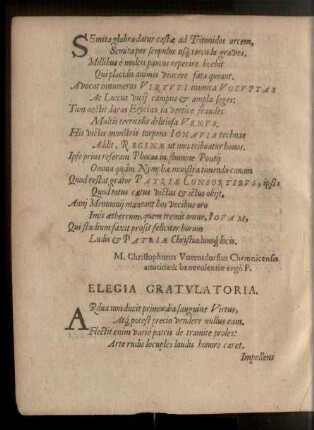 SEmita glabra datur castæ ad Tritonidos arcem,
Semita per scrupulos usq; terenda graves.
Millibus è multis paucos reperare licebit
Qui placidis animis vincere fata queant.
Advocat innumeros VIRTUTI inimica VOLUPTAS
Ac Luxus vicij campus & ampla seges:
Tum nectit duras Erycina in vertice fraudes
Multis terricolis delitiosa VENUS.
His victus monstris torpens IGNAVIA technæ
Addit, REGINÆ ut non tribuatur honos.
Ipse prius referam Phocas in flumine Ponti
Omnia quàm Nymphæ monstra timenda canam
Quod restat grator PATRIÆ CONSORTIBUS, ipsis
Quod totus cætus dictus & ictus obit.
Annj Memnonij maneant hos vocibus oro
Imis æthereum quem tremit omne, IOVAM,
Qui studium faxit profit feliciter horum
Ludis & PATRIÆ Christiadumq; locis.
M. Christophorus Vuerndorffius Chemnicensis
amicitiæ & benevolentiæ ergò F.
ELEGIA GRATULATORIA.
ARdua non ducit primordia sanguine Virtus,
Atq; potest precio vendere nullus eam.
Flectit enim vario patriæ de tramite proles:
Arte rudis locuples laudis honore caret.
Impellens